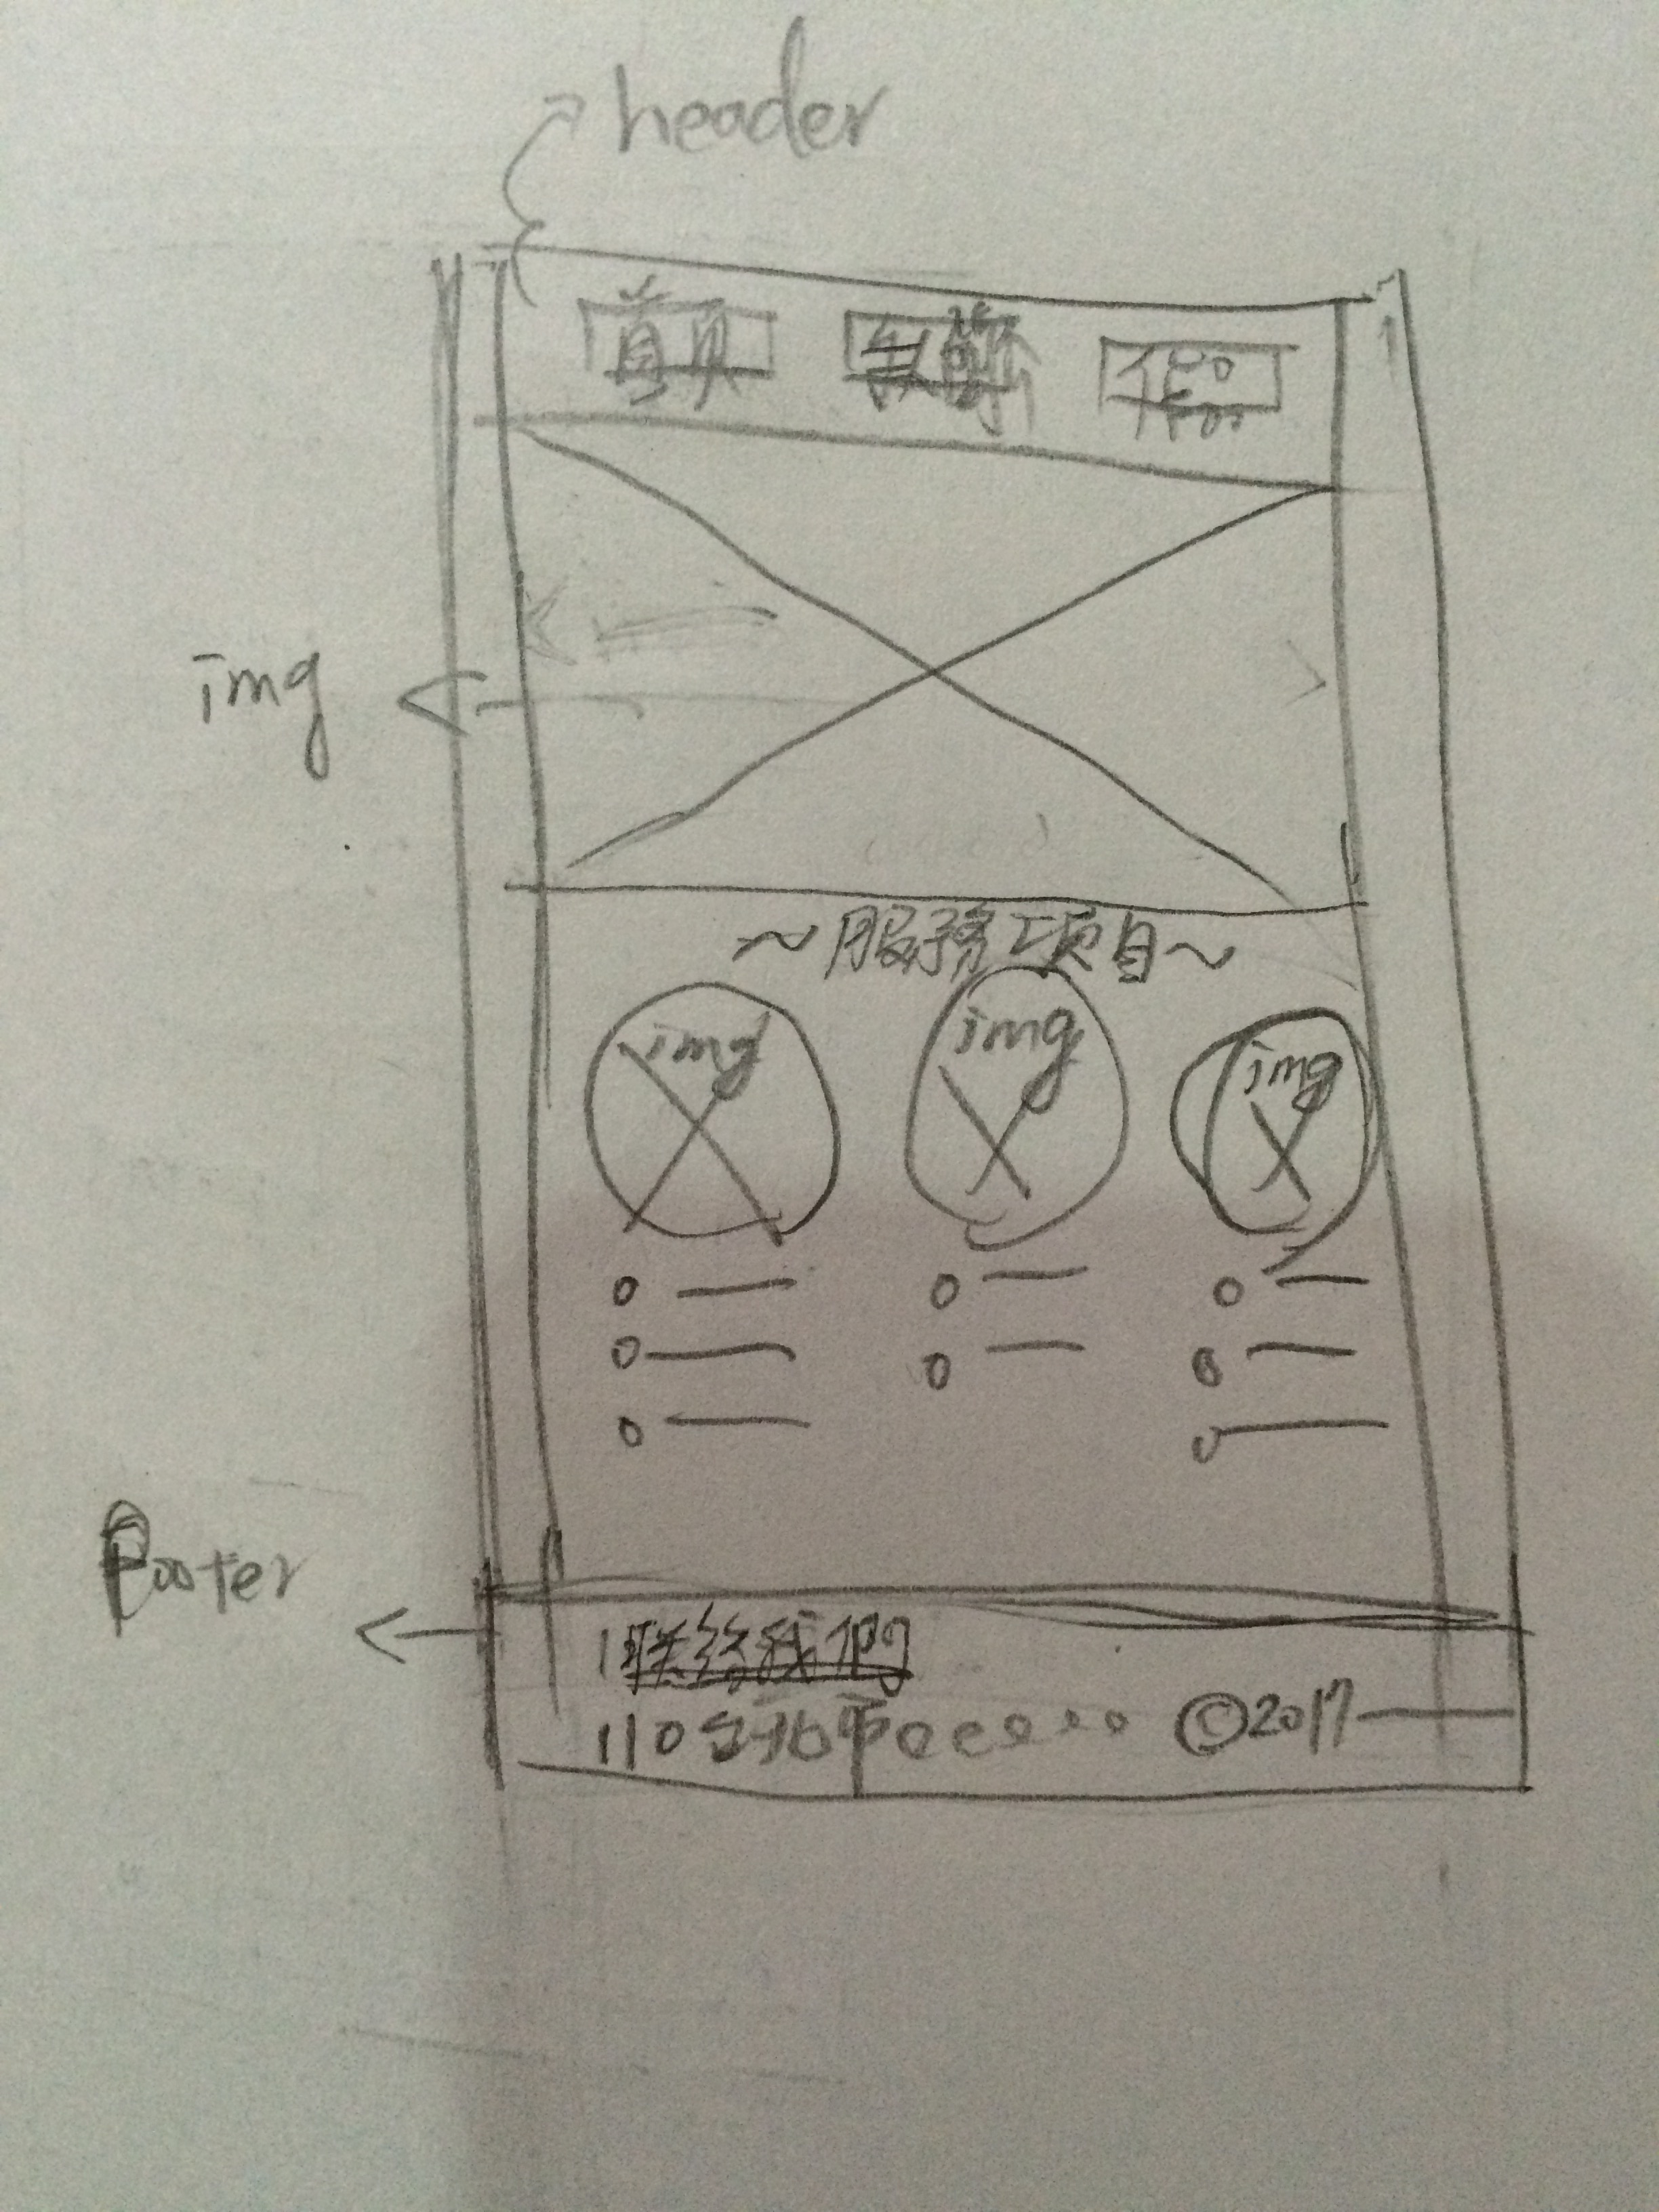 header
首页
img
～服務項目～
img img img
footer
联络我們
110 ©2017